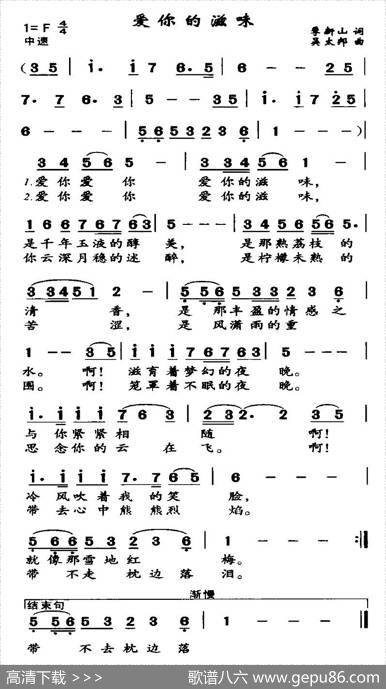 爱你的滋味
1=F 4/4
中速
季新山 词
吴太邦 曲
(35 | i·i 17 65 | 6·35 |
7 7 6·3 | 5 - - 35 | i·i 17 25 |
6 - - - | 5 6 5 3 2 3 6 | 1 - - - ) |
3 4 5 6 5 - | 3 3 4 5 6 1 |
1.爱你爱你 爱你的滋味,
2.爱你爱你 爱你的滋味,
1 6 6 7 6 6 7 6 3 | 5 - - - | 3 3 4 5 6 5 6 5· |
是千年玉液的醇美, 是那熟荔枝的
你云深月稳的迷醉, 是柠檬未熟的
3 3 4 5 1 2 - | 5 5 5 6 5 3 2 3 2 6 |
清香, 是那丰盈的情感之
苦涩, 是风潇雨的重
1 - - 3 5 | i i i i 7 6 7 6 6 3 | 5 - - - |
水。啊! 滋育着梦幻的夜晚。
围。啊! 笼罩着不眠的夜晚。
i· i i i 7 6 3 | 2 3 2· 3 5 |
与你紧紧相随 啊!
思念你的云在飞。 啊!
i· i i i 7· 7 6 5 | 6 - - - |
冷风吹着我的笑脸,
带去心中熊熊烈焰。
5 6 6 5 3 2 3 6 | 1 - - - :||
就像那雪地红梅。
带不走枕边落泪。
渐慢
结束句
5 6 5 3 2 3 6 | 1 - - - | 1 - - - ||
带不去枕边落
高清下载 >>>
歌谱八六 www.gepu86.com